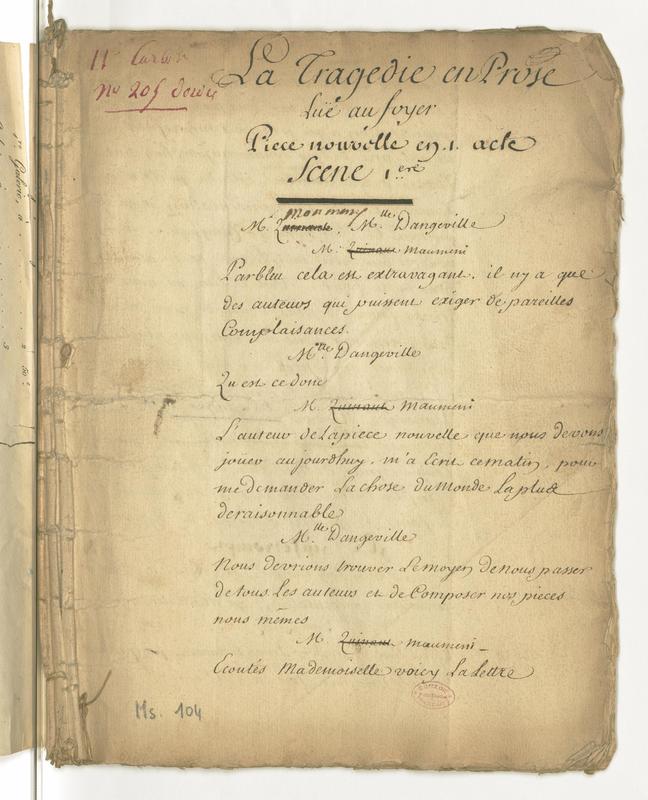 11e Carton
no 205
La Tragedie en Prose
Luë au foyer
Piece nouvelle en 1. acte
Scene 1.ere
Maumeni
Mr. Quinault, Mlle Dangeville
Mr. Quinault Maumeni
Parbleu cela est extravagant. il ny a que
des auteurs qui puissent exiger de pareilles
Complaisances.
Mlle Dangeville
Qu est ce donc
M. Quinault Maumeni
L'auteur de Lapiece nouvelle que nous devons
jouer aujourdhuy. m'a Ecrit cematin, pour
me demander Lachose du Monde Laplus
deraisonnable
Mlle Dangeville
Nous devrions trouver Lemoyen de nous passer
de tous Les auteurs et de Composer nos pieces
nous mêmes
M. Quinault Maumeni
Ecoutés Mademoiselle voicy La Lettre
Ms. 104